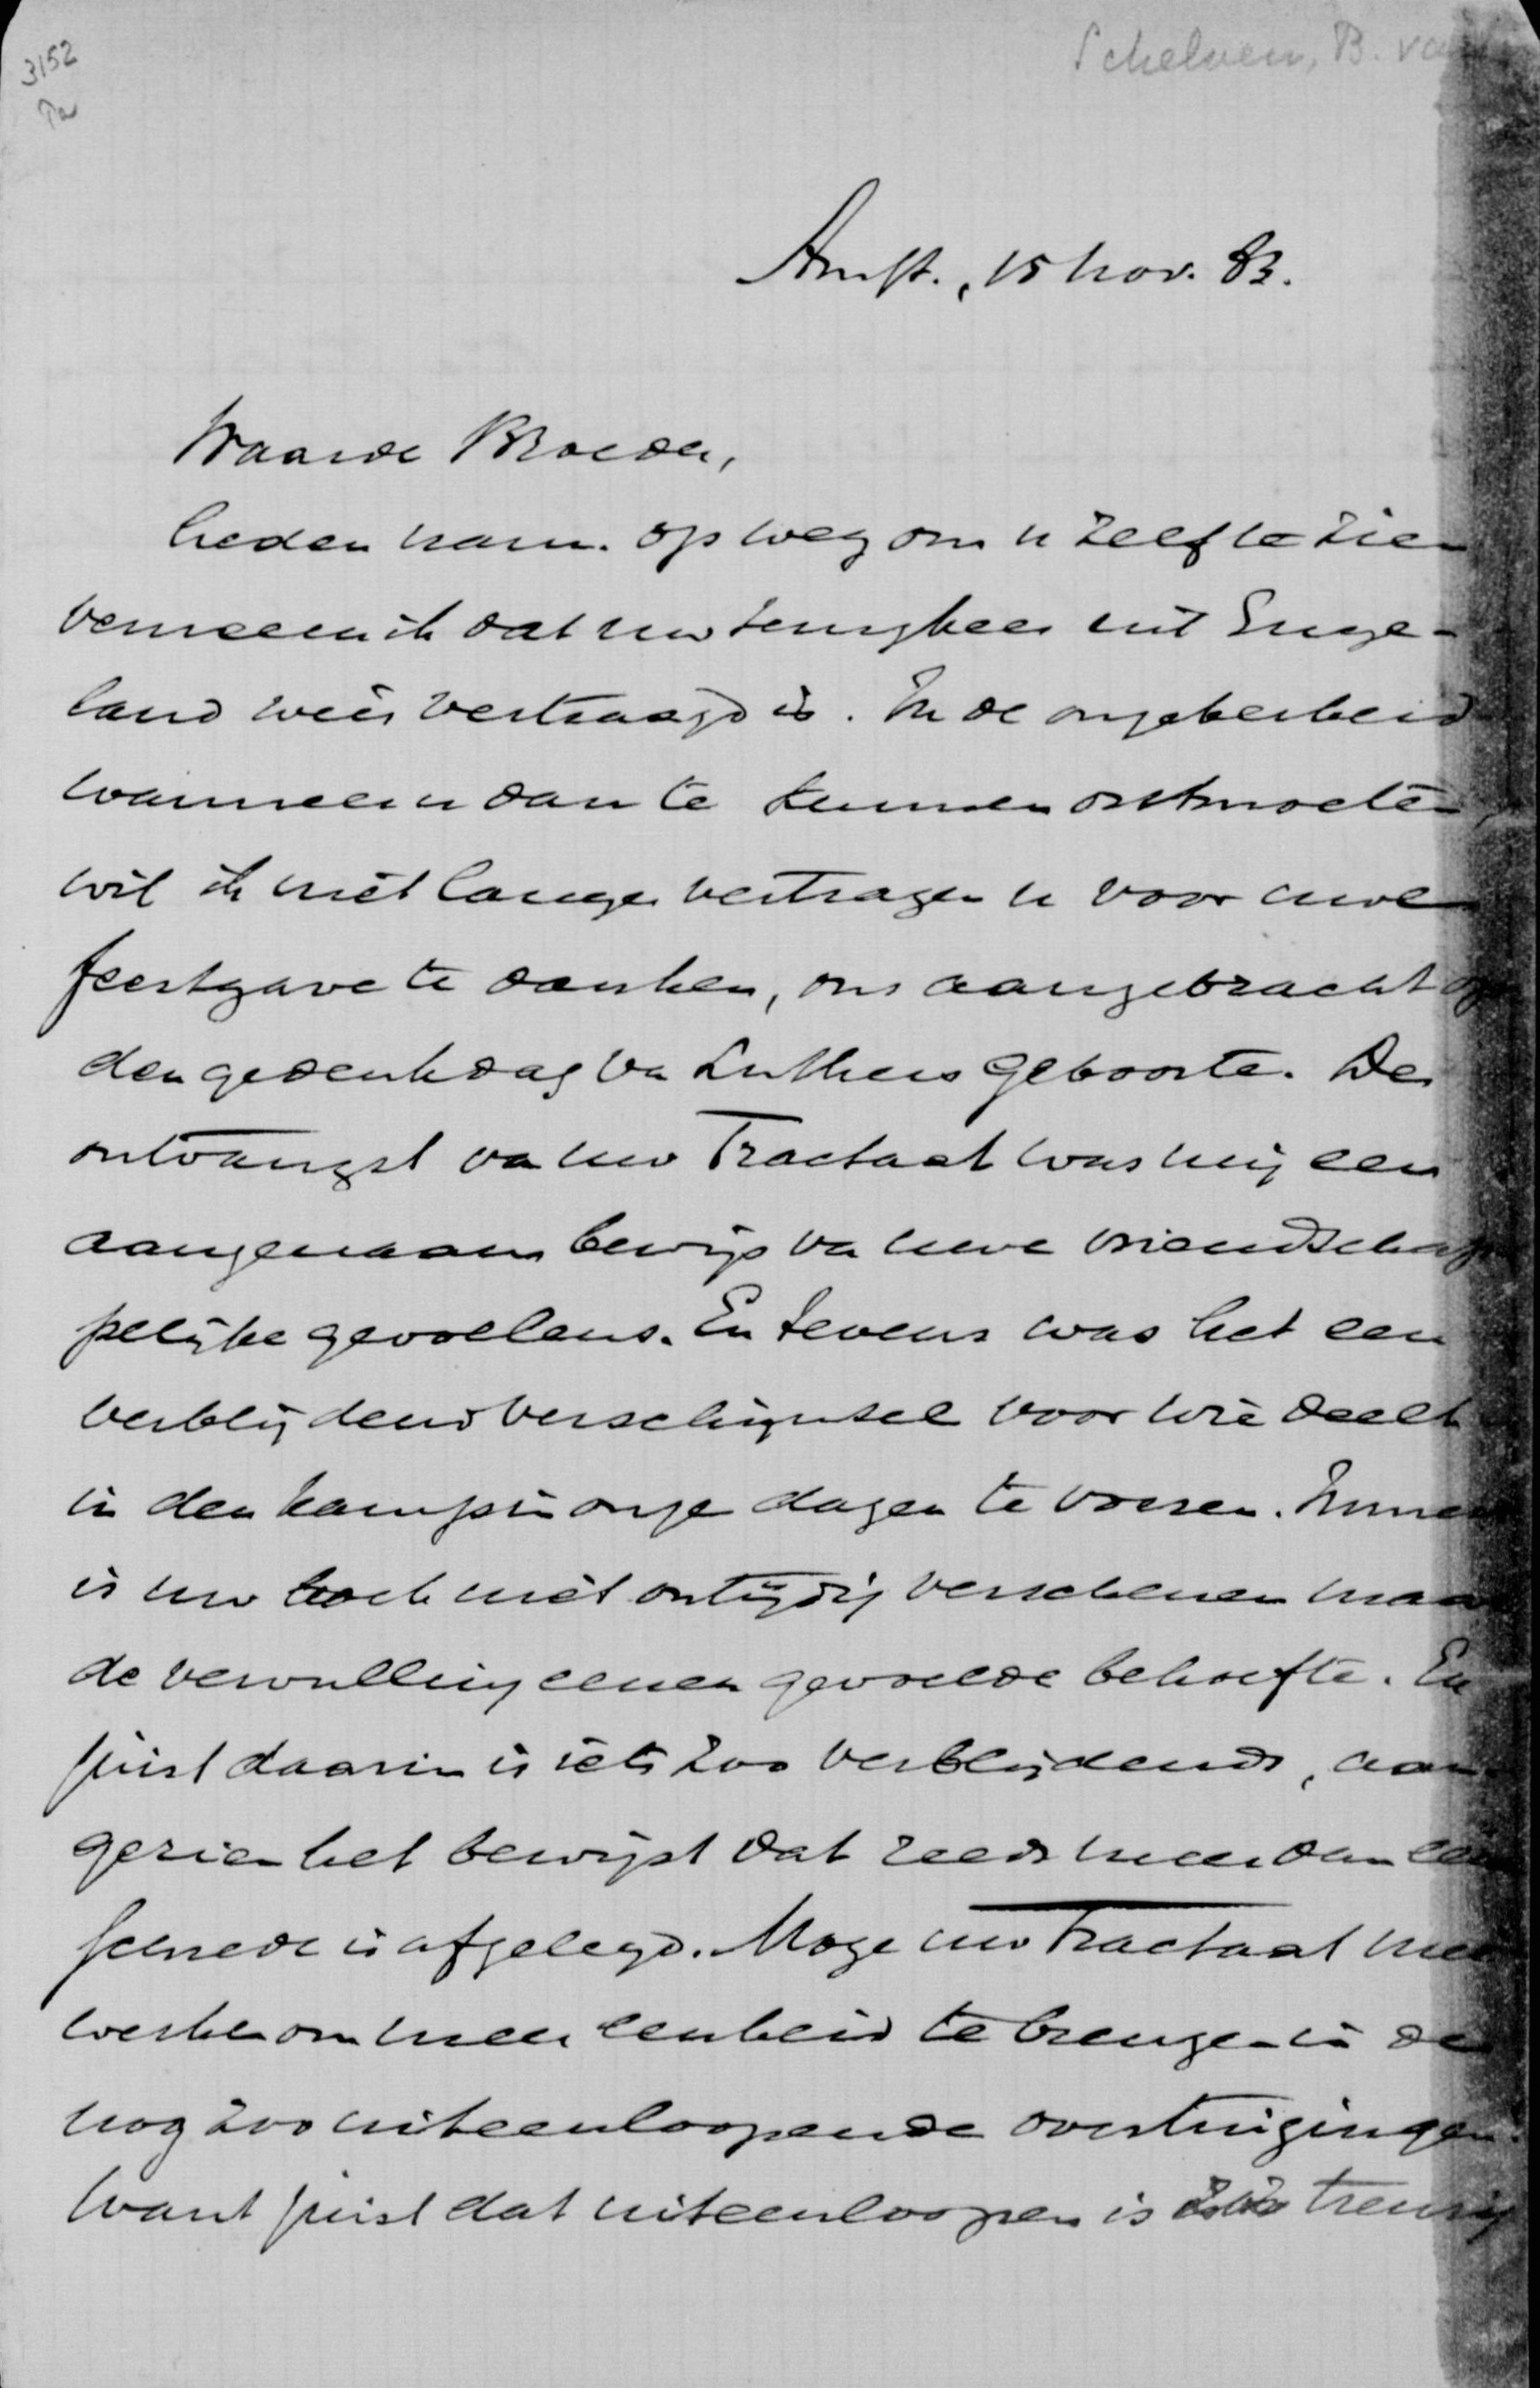 3152
Schelven, B. va
Amst., 15 Nov. 83.
Waarde Broeder,
heden nam. op weg om u zelf te zien
verneem ik dat uw terugkeer uit Enge-
land weer vertraagd is. In de onzekerheid
wanneer u dan te kunnen ontmoeten,
wil ik niet langer vertragen u voor uwe
feestgave te danken, ons aangebracht op
den gedenkdag van Luthers geboorte. De
ontvangst van uw Tractaat was mij een
aangenaam bewijs van uwe vriendschap
pelijke gevoelens. En tevens was het een
verblijdend verschijnsel voor wie deelt
in den kamp in onze dagen te voeren. Immers
is uw boek niet ontijdig verschenen maar
de vervulling eener gevoelde behoefte. En
juist daarin is iets zoo verblijdends, aan-
gezien het bewijst dat reeds meer dan een
schrede is afgelegd. Moge uw Tractaat mee
werken om meer eenheid te brengen in de
nog zoo uiteenloopende overtuigingen.
Want juist dat uiteenloopen is zoo treurig